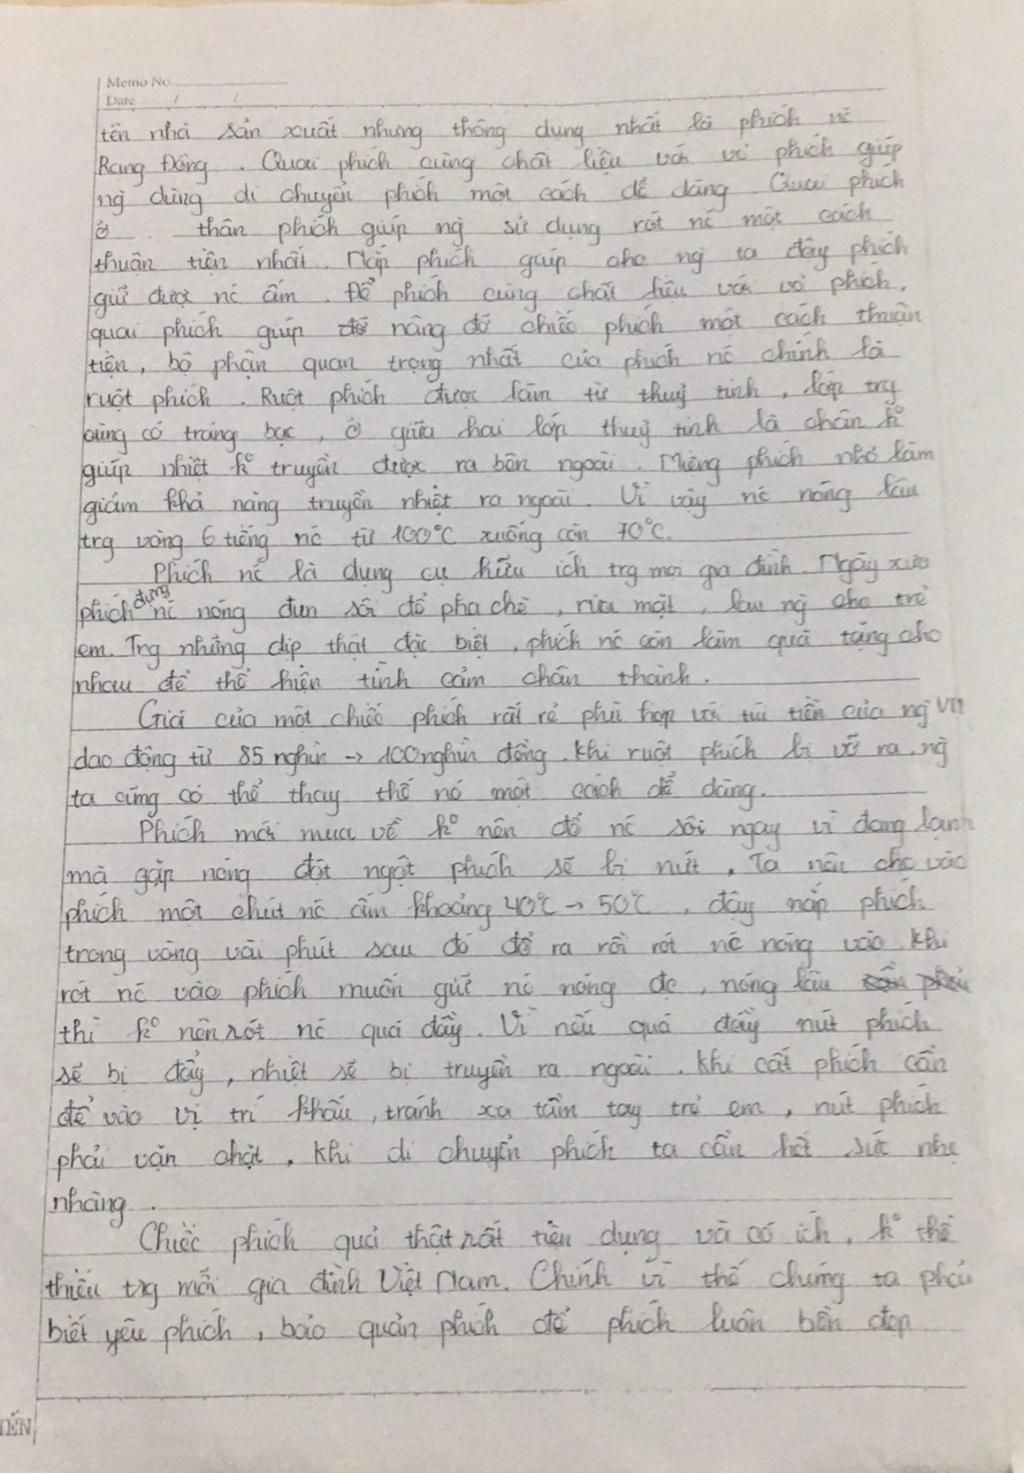 Memo No.
Date / /
tên nhà sản xuất nhưng thông dụng nhất là phích nc
Rạng Đông. Quai phích cùng chất liệu với vỏ phích giúp
ng dùng di chuyển phích một cách dễ dàng. Quai phích
ở thân phích giúp ng sử dụng rót nc một cách
thuận tiện nhất. Nắp phích giúp cho ng ta đậy phích
giữ được nc ấm. Đế phích cùng chất liệu với vỏ phích,
quai phích giúp nâng đỡ chiếc phích một cách thuận
tiện, bộ phận quan trọng nhất của phích nc chính là
ruột phích. Ruột phích được làm từ thuỷ tinh, lớp trg
cùng có tráng bạc, ở giữa hai lớp thuỷ tinh là chân ko
giúp nhiệt ko truyền được ra bên ngoài. Miệng phích nhỏ làm
giảm khả năng truyền nhiệt ra ngoài. Vì vậy nc nóng lâu
trg vòng 6 tiếng nc từ 100°C xuống còn 70°C.
Phích nc là dụng cụ hữu ích trg mọi gia đình. Ngày xưa
phích đựng nc nóng đun sôi để pha chè, rửa mặt, lau ng cho trẻ
em. Trg những dịp thật đặc biệt, phích nc còn làm quà tặng cho
nhau để thể hiện tình cảm chân thành.
Giá của một chiếc phích rất rẻ phù hợp với túi tiền của ng VN
dao động từ 85 nghìn → 100 nghìn đồng. Khi ruột phích bị vỡ ra, ng
ta cũng có thể thay thế nó một cách dễ dàng.
Phích mới mua về ko nên đổ nc sôi ngay vì đang lạnh
mà gặp nóng đột ngột phích sẽ bị nứt. Ta nên cho vào
phích một chút nc ấm khoảng 40°C → 50°C, đậy nắp phích
trong vòng vài phút sau đó đổ ra rồi rót nc nóng vào. Khi
rót nc vào phích muốn giữ nc nóng đc, nóng lâu
thì ko nên rót nc quá đầy. Vì nếu quá đầy nút phích
sẽ bị đẩy, nhiệt sẽ bị truyền ra ngoài. Khi cất phích cần
để vào vị trí khấu, tránh xa tầm tay trẻ em, nút phích
phải vặn chặt. Khi di chuyển phích ta cần hết sức nhẹ
nhàng.
Chiếc phích quả thật rất tiện dụng và có ích, ko thể
thiếu trg mỗi gia đình Việt Nam. Chính vì thế chúng ta phải
biết yêu phích, bảo quản phích để phích luôn bền đẹp